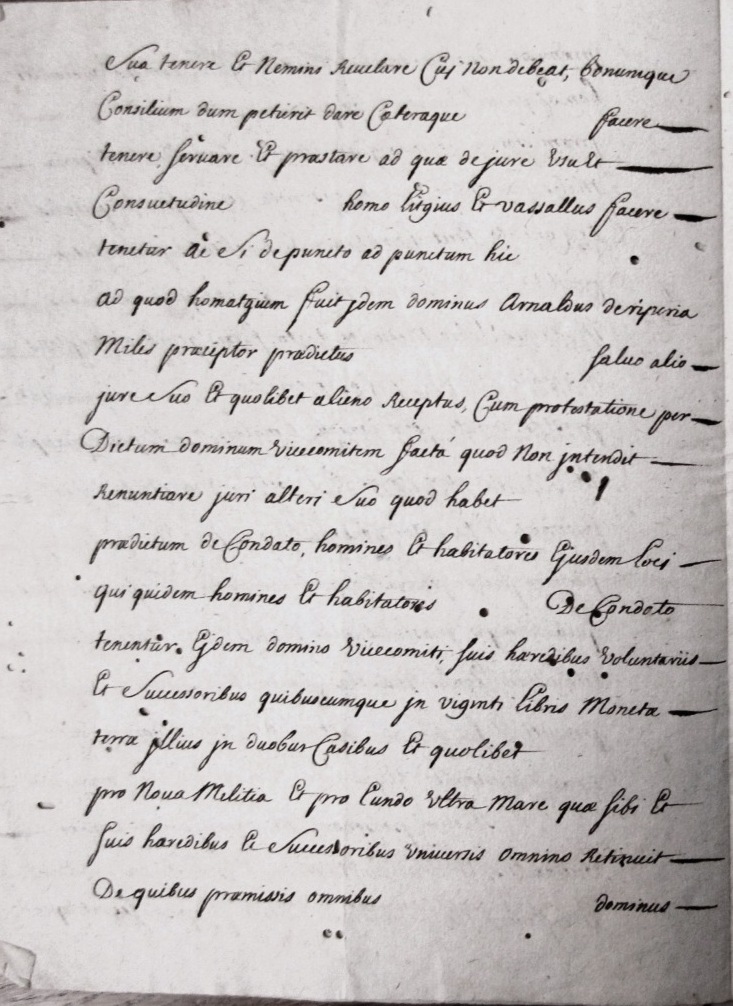 sua tenere Et Nemini Revelare Cuj Non debeat, bonumque
Consilium dum petierit dare Cæteraque facere
tenere servare Et præstare ad quæ de jure Usu Et
Consuetudine homo ligius Et vassallus facere
tenetur ac si de puncto ad punctum hic
ad quod homatgium fuit jdem dominus Arnaldus de riperia
Miles præceptor prædictus salvo alio
jure suo Et quolibet alieno Receptus, Cum protestatione per
Dictum dominum vicecomitem factá quod Non jntendit
Renuntiare juri alteri suo quod habet
prædictum de Condato, homines Et habitatores Ejusdem loci
qui quidem homines Et habitatores De Condato
tenentur Ejdem domino vicecomiti, suis hæredibus voluntariis
Et Successoribus quibuscumque jn viginti libris Moneta
terræ jllius jn duobus Casibus Et quolibet
pro Nova Militia Et pro Eundo Ultra Mare quæ sibi Et
suis hæredibus Et Successoribus universis omnino Retinuit
De quibus præmissis omnibus dominus